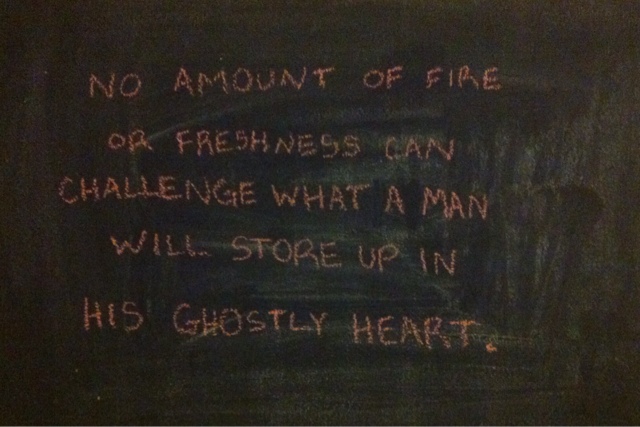 NO AMOUNT OF FIRE
OR FRESHNESS CAN
CHALLENGE WHAT A MAN
WILL STORE UP IN
HIS GHOSTLY HEART.